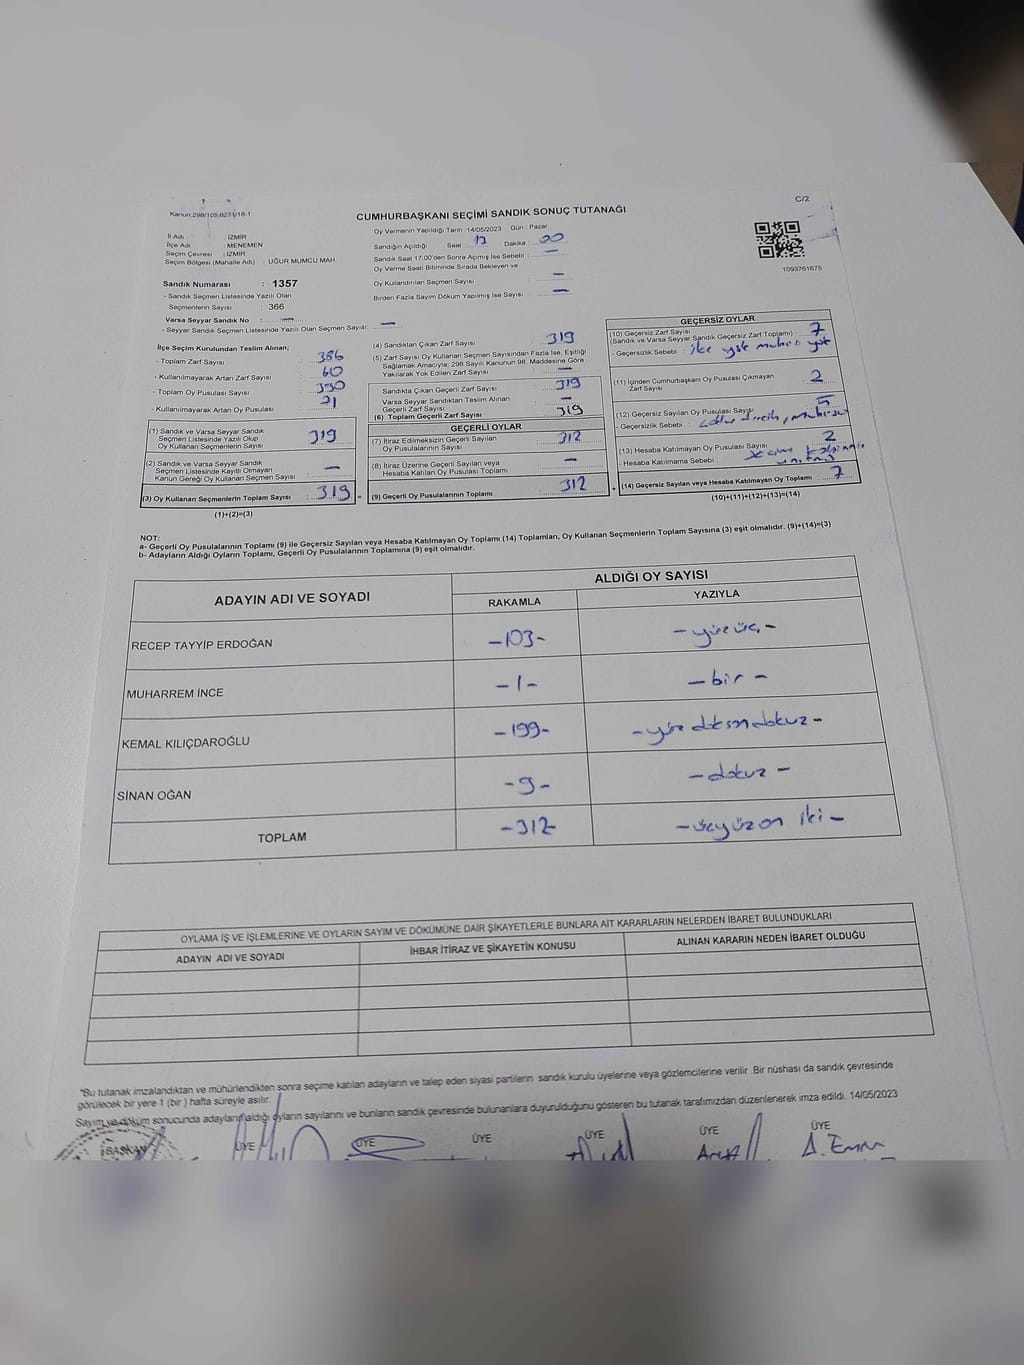 C/2
Kanun 298/105,6271/18-1
CUMHURBAŞKANI SEÇİMİ SANDIK SONUÇ TUTANAĞI
İl Adı : İZMİR
İlçe Adı : MENEMEN
Seçim Çevresi : İZMİR
Seçim Bölgesi (Mahalle Adı) : UĞUR MUMCU MAH
Sandık Numarası : 1357
- Sandık Seçmen Listesinde Yazılı Olan
Seçmenlerin Sayısı : 366
Varsa Seyyar Sandık No : —
- Seyyar Sandık Seçmen Listesinde Yazılı Olan Seçmen Sayısı: —
Oy Vermenin Yapıldığı Tarih : 14/05/2023 Gün : Pazar
Sandığın Açıldığı Saat : 17 Dakika : 00
Sandık Saat 17.00'den Sonra Açılmış İse Sebebi : —
Oy Verme Saati Bitiminde Sırada Bekleyen ve
Oy Kullandırılan Seçmen Sayısı : —
Birden Fazla Sayım Döküm Yapılmış İse Sayısı : —
1093761675
İlçe Seçim Kurulundan Teslim Alınan;
- Toplam Zarf Sayısı : 386
- Kullanılmayarak Artan Zarf Sayısı : 60
- Toplam Oy Pusulası Sayısı : 390
- Kullanılmayarak Artan Oy Pusulası : 71
(1) Sandık ve Varsa Seyyar Sandık
Seçmen Listesinde Yazılı Olup
Oy Kullanan Seçmenlerin Sayısı : 319
(2) Sandık ve Varsa Seyyar Sandık
Seçmen Listesinde Kayıtlı Olmayan
Kanun Gereği Oy Kullanan Seçmen Sayısı : —
(3) Oy Kullanan Seçmenlerin Toplam Sayısı : 319
(1)+(2)=(3)
(4) Sandıktan Çıkan Zarf Sayısı : 319
(5) Zarf Sayısı Oy Kullanan Seçmen Sayısından Fazla İse, Eşitliği
Sağlamak Amacıyla; 298 Sayılı Kanunun 98. Maddesine Göre
Yakılarak Yok Edilen Zarf Sayısı : —
Sandıkta Çıkan Geçerli Zarf Sayısı : 319
Varsa Seyyar Sandıktan Teslim Alınan
Geçerli Zarf Sayısı : —
(6) Toplam Geçerli Zarf Sayısı : 319
GEÇERLİ OYLAR
(7) İtiraz Edilmeksizin Geçerli Sayılan
Oy Pusulalarının Sayısı : 312
(8) İtiraz Üzerine Geçerli Sayılan veya
Hesaba Katılan Oy Pusulası Toplamı : —
(9) Geçerli Oy Pusulalarının Toplamı : 312
GEÇERSİZ OYLAR
(10) Geçersiz Zarf Sayısı
(Sandık ve Varsa Seyyar Sandık Geçersiz Zarf Toplamı) : 7
- Geçersizlik Sebebi : yok
(11) İçinden Cumhurbaşkanı Oy Pusulası Çıkmayan
Zarf Sayısı : 2
(12) Geçersiz Sayılan Oy Pusulası Sayısı
- Geçersizlik Sebebi :
(13) Hesaba Katılmayan Oy Pusulası Sayısı : 2
- Hesaba Katılmama Sebebi :
(14) Geçersiz Sayılan veya Hesaba Katılmayan Oy Toplamı : 7
(10)+(11)+(12)+(13)=(14)
NOT:
a- Geçerli Oy Pusulalarının Toplamı (9) ile Geçersiz Sayılan veya Hesaba Katılmayan Oy Toplamı (14) Toplamları, Oy Kullanan Seçmenlerin Toplam Sayısına (3) eşit olmalıdır. (9)+(14)=(3)
b- Adayların Aldığı Oyların Toplamı, Geçerli Oy Pusulalarının Toplamına (9) eşit olmalıdır.
ADAYIN ADI VE SOYADI
ALDIĞI OY SAYISI
RAKAMLA YAZIYLA
RECEP TAYYİP ERDOĞAN -103- -yüzüç-
MUHARREM İNCE -1- -bir-
KEMAL KILIÇDAROĞLU -199- -yüzdoksandokuz-
SİNAN OĞAN -9- -dokuz-
TOPLAM -312- -üçyüzon iki-
OYLAMA İŞ VE İŞLEMLERİNE VE OYLARIN SAYIM VE DÖKÜMÜNE DAİR ŞİKAYETLERLE BUNLARA AİT KARARLARIN NELERDEN İBARET BULUNDUKLARI
ADAYIN ADI VE SOYADI İHBAR İTİRAZ VE ŞİKAYETİN KONUSU ALINAN KARARIN NEDEN İBARET OLDUĞU
*Bu tutanak imzalandıktan ve mühürlendikten sonra seçime katılan adayların ve talep eden siyasi partilerin sandık kurulu üyelerine veya gözlemcilerine verilir .Bir nüshası da sandık çevresinde
görülecek bir yere 1 (bir ) hafta süreyle asılır.
Sayım ve döküm sonucunda adayların aldığı oyların sayılarını ve bunların sandık çevresinde bulunanlara duyurulduğunu gösteren bu tutanak tarafımızdan düzenlenerek imza edildi. 14/05/2023
BAŞKAN ÜYE ÜYE ÜYE ÜYE ÜYE ÜYE